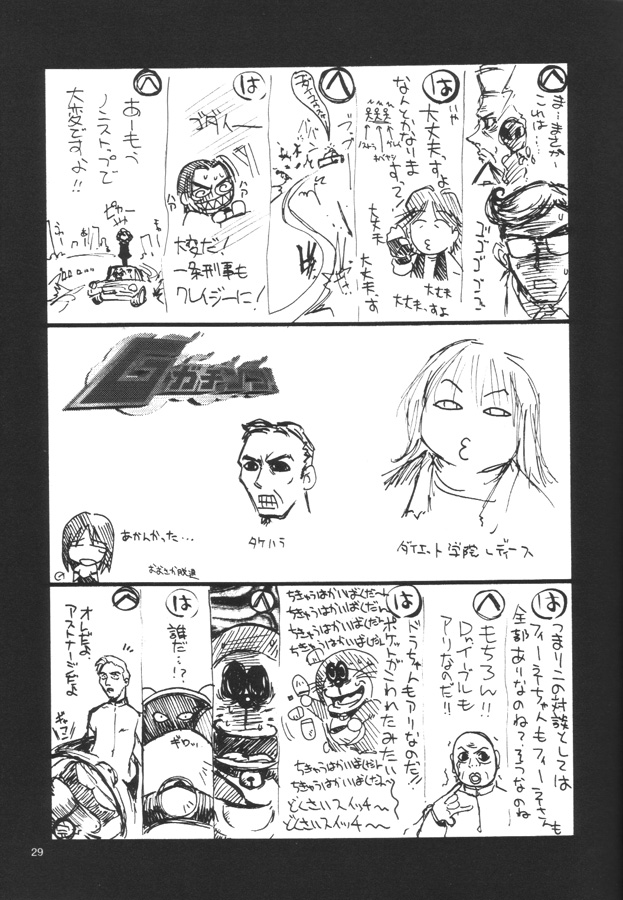 へ
ま…まさか
これは…
ゴゴゴゴゴゴ
は
いや
大丈夫っすよ
なんとかなりま
すって!
大丈夫
大丈夫っす
大丈夫
大丈夫っすよ
へ
ブブ
は
ゴダイ――
ハァ
ハァ
大変だ!
一条刑事も
クレイジーに!
へ
あーもう
ノンストップで
大変ですよ!!
ピカー
Gガチンコ
タケハラ
ダイエット学院レディース
あかんかった…
おおさか
は
つまりこの対談としては
フィーネちゃんもフィーネさんも
全部ありなのね?そうなのね
へ
もちろん!!
Dr.イーブルも
アリなのだ!!
は
ドラちゃんもアリなのだ!!
ポケットがこわれたみたい〜
ちきゅうはかいばくだ〜ん
ちきゅうはかいばくだん
ちきゅうはかいばくだん
ちきゅうはかいばくだん
ちきゅうはかいばくだん
ちきゅうはかいばくだん
どくさいスイッチ〜
どくさいスイッチ〜
へ
は
誰だ…!?
ギロッ
へ
オレだよ、
アストナージだよ
29